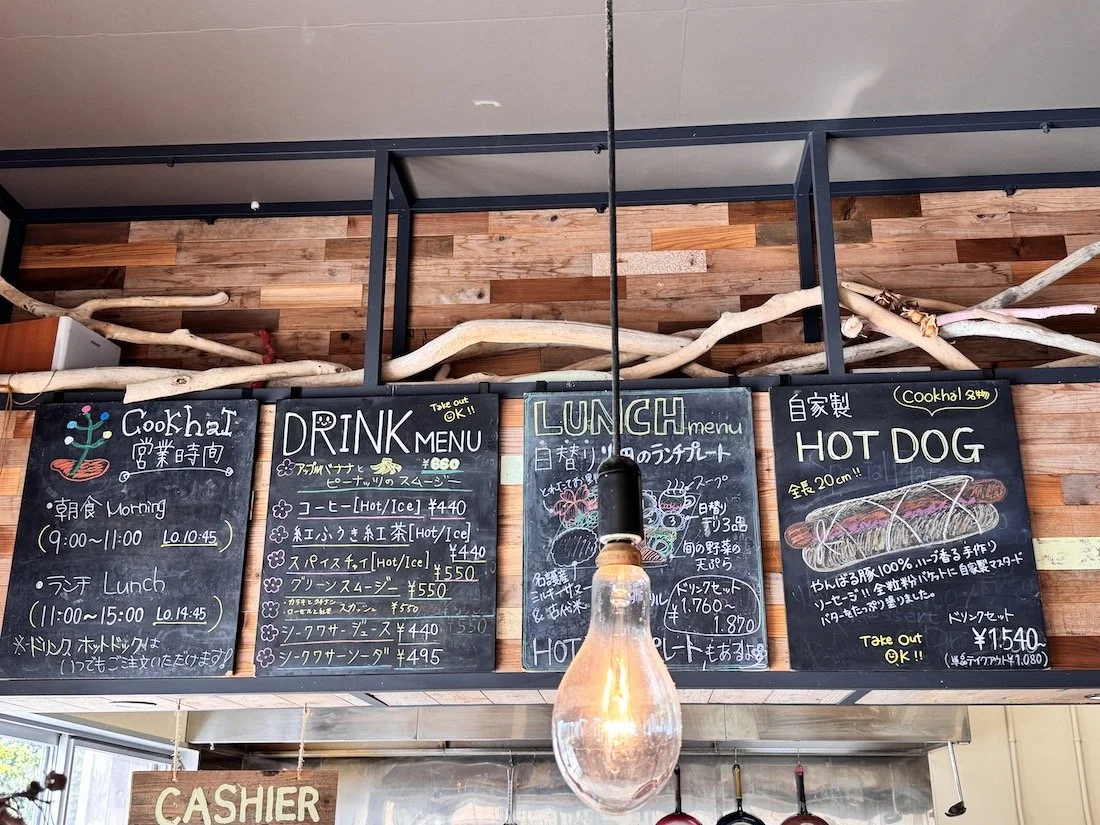 Cookhal
営業時間
・朝食 Morning
(9:00〜11:00 Lo.10:45)
・ランチ Lunch
(11:00〜15:00 Lo.14:45)
※ドリンク ホットドックは
いつでもご注文いただけます。
Take out
OK!!
DRINK MENU
アップルバナナと ¥660
ピーナッツのスムージー
コーヒー[Hot/Ice] ¥440
紅ふうき紅茶[Hot/Ice]
¥440
スパイスチャイ[Hot/Ice]
¥550
グリーンスムージー
¥550
スカッシュ ¥550
シークワサージュース ¥440
シークワサーソーダ ¥495
LUNCH menu
日替り のランチプレート
スープ
日替り
デリ3品
旬の野菜の
天ぷら
名護産
ドリンクセット
¥1.760〜
1.870
HOT プレートもあるよ
自家製
Cookhal 名物
HOT DOG
全長20cm!!
やんばる豚100%、ハーブ香る手作り
ソーセージ!! 全粒粉バゲットに自家製マスタード
バターをたっぷり塗りました。
ドリンクセット
¥1.540〜
(単品テイクアウト¥1.080)
Take Out
OK!!
CASHIER